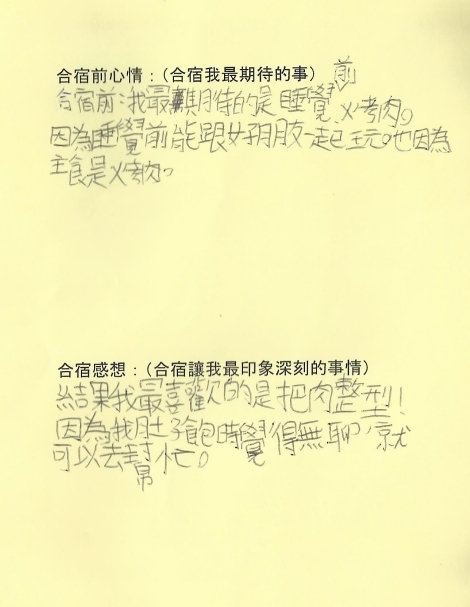 合宿前心情：（合宿我最期待的事）
合宿前：我最期待的是睡覺前、火考肉。
因為睡覺前能跟好朋友一起玩。也因為
主食是火考肉。
合宿感想：（合宿讓我最印象深刻的事情）
結果我最喜歡的是把肉整型！
因為我肚子飽時覺得無聊，就
可以去幫忙。